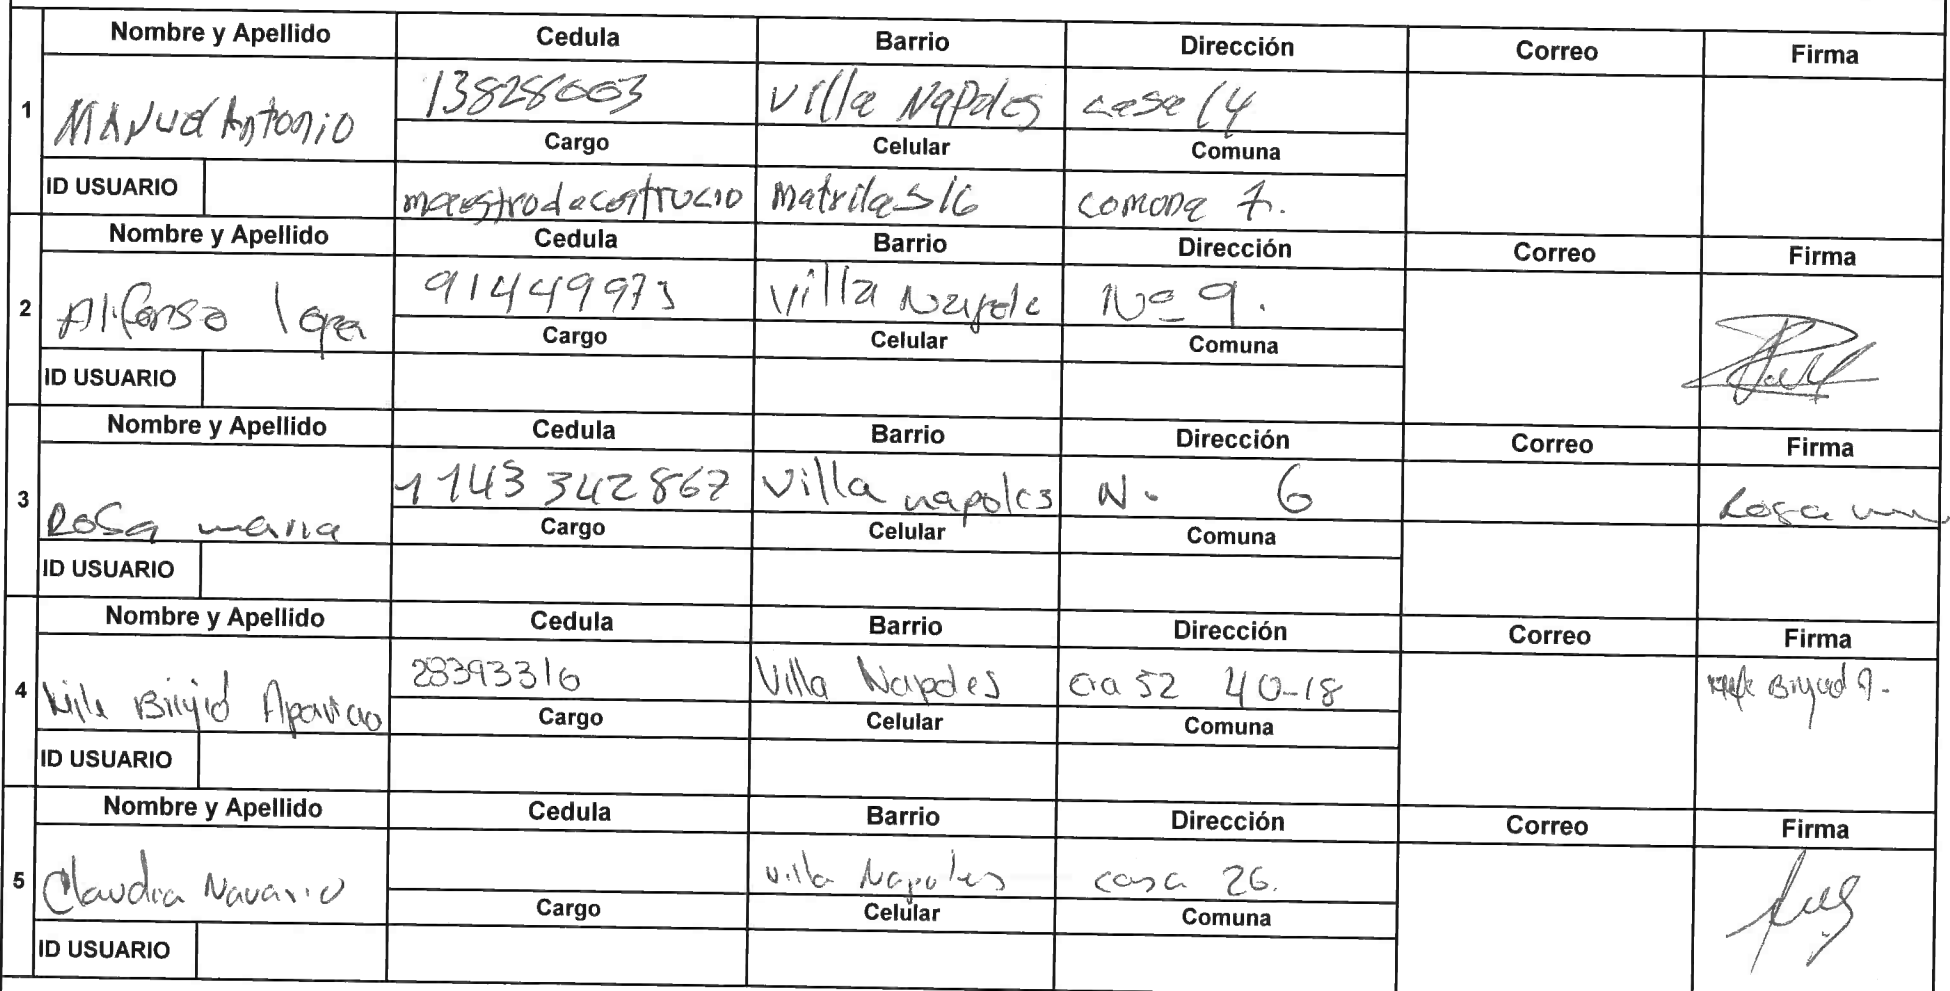 Nombre y Apellido Cedula Barrio Dirección Correo Firma
1 Manuel Antonio 13828003 Villa Napoles casa 14
Cargo Celular Comuna
ID USUARIO maestrodecostrucio comona 7.
Nombre y Apellido Cedula Barrio Dirección Correo Firma
2 Alfonso lopez 91449973 Villa Napole Nº 9.
Cargo Celular Comuna
ID USUARIO
Nombre y Apellido Cedula Barrio Dirección Correo Firma
3 Rosa maria 1143342867 Villa napoles N. 6 Rosa
Cargo Celular Comuna
ID USUARIO
Nombre y Apellido Cedula Barrio Dirección Correo Firma
4 Aparicio 28393316 Villa Napoles cra 52 40-18
Cargo Celular Comuna
ID USUARIO
Nombre y Apellido Cedula Barrio Dirección Correo Firma
5 Claudia Navarro villa Napoles casa 26.
Cargo Celular Comuna
ID USUARIO